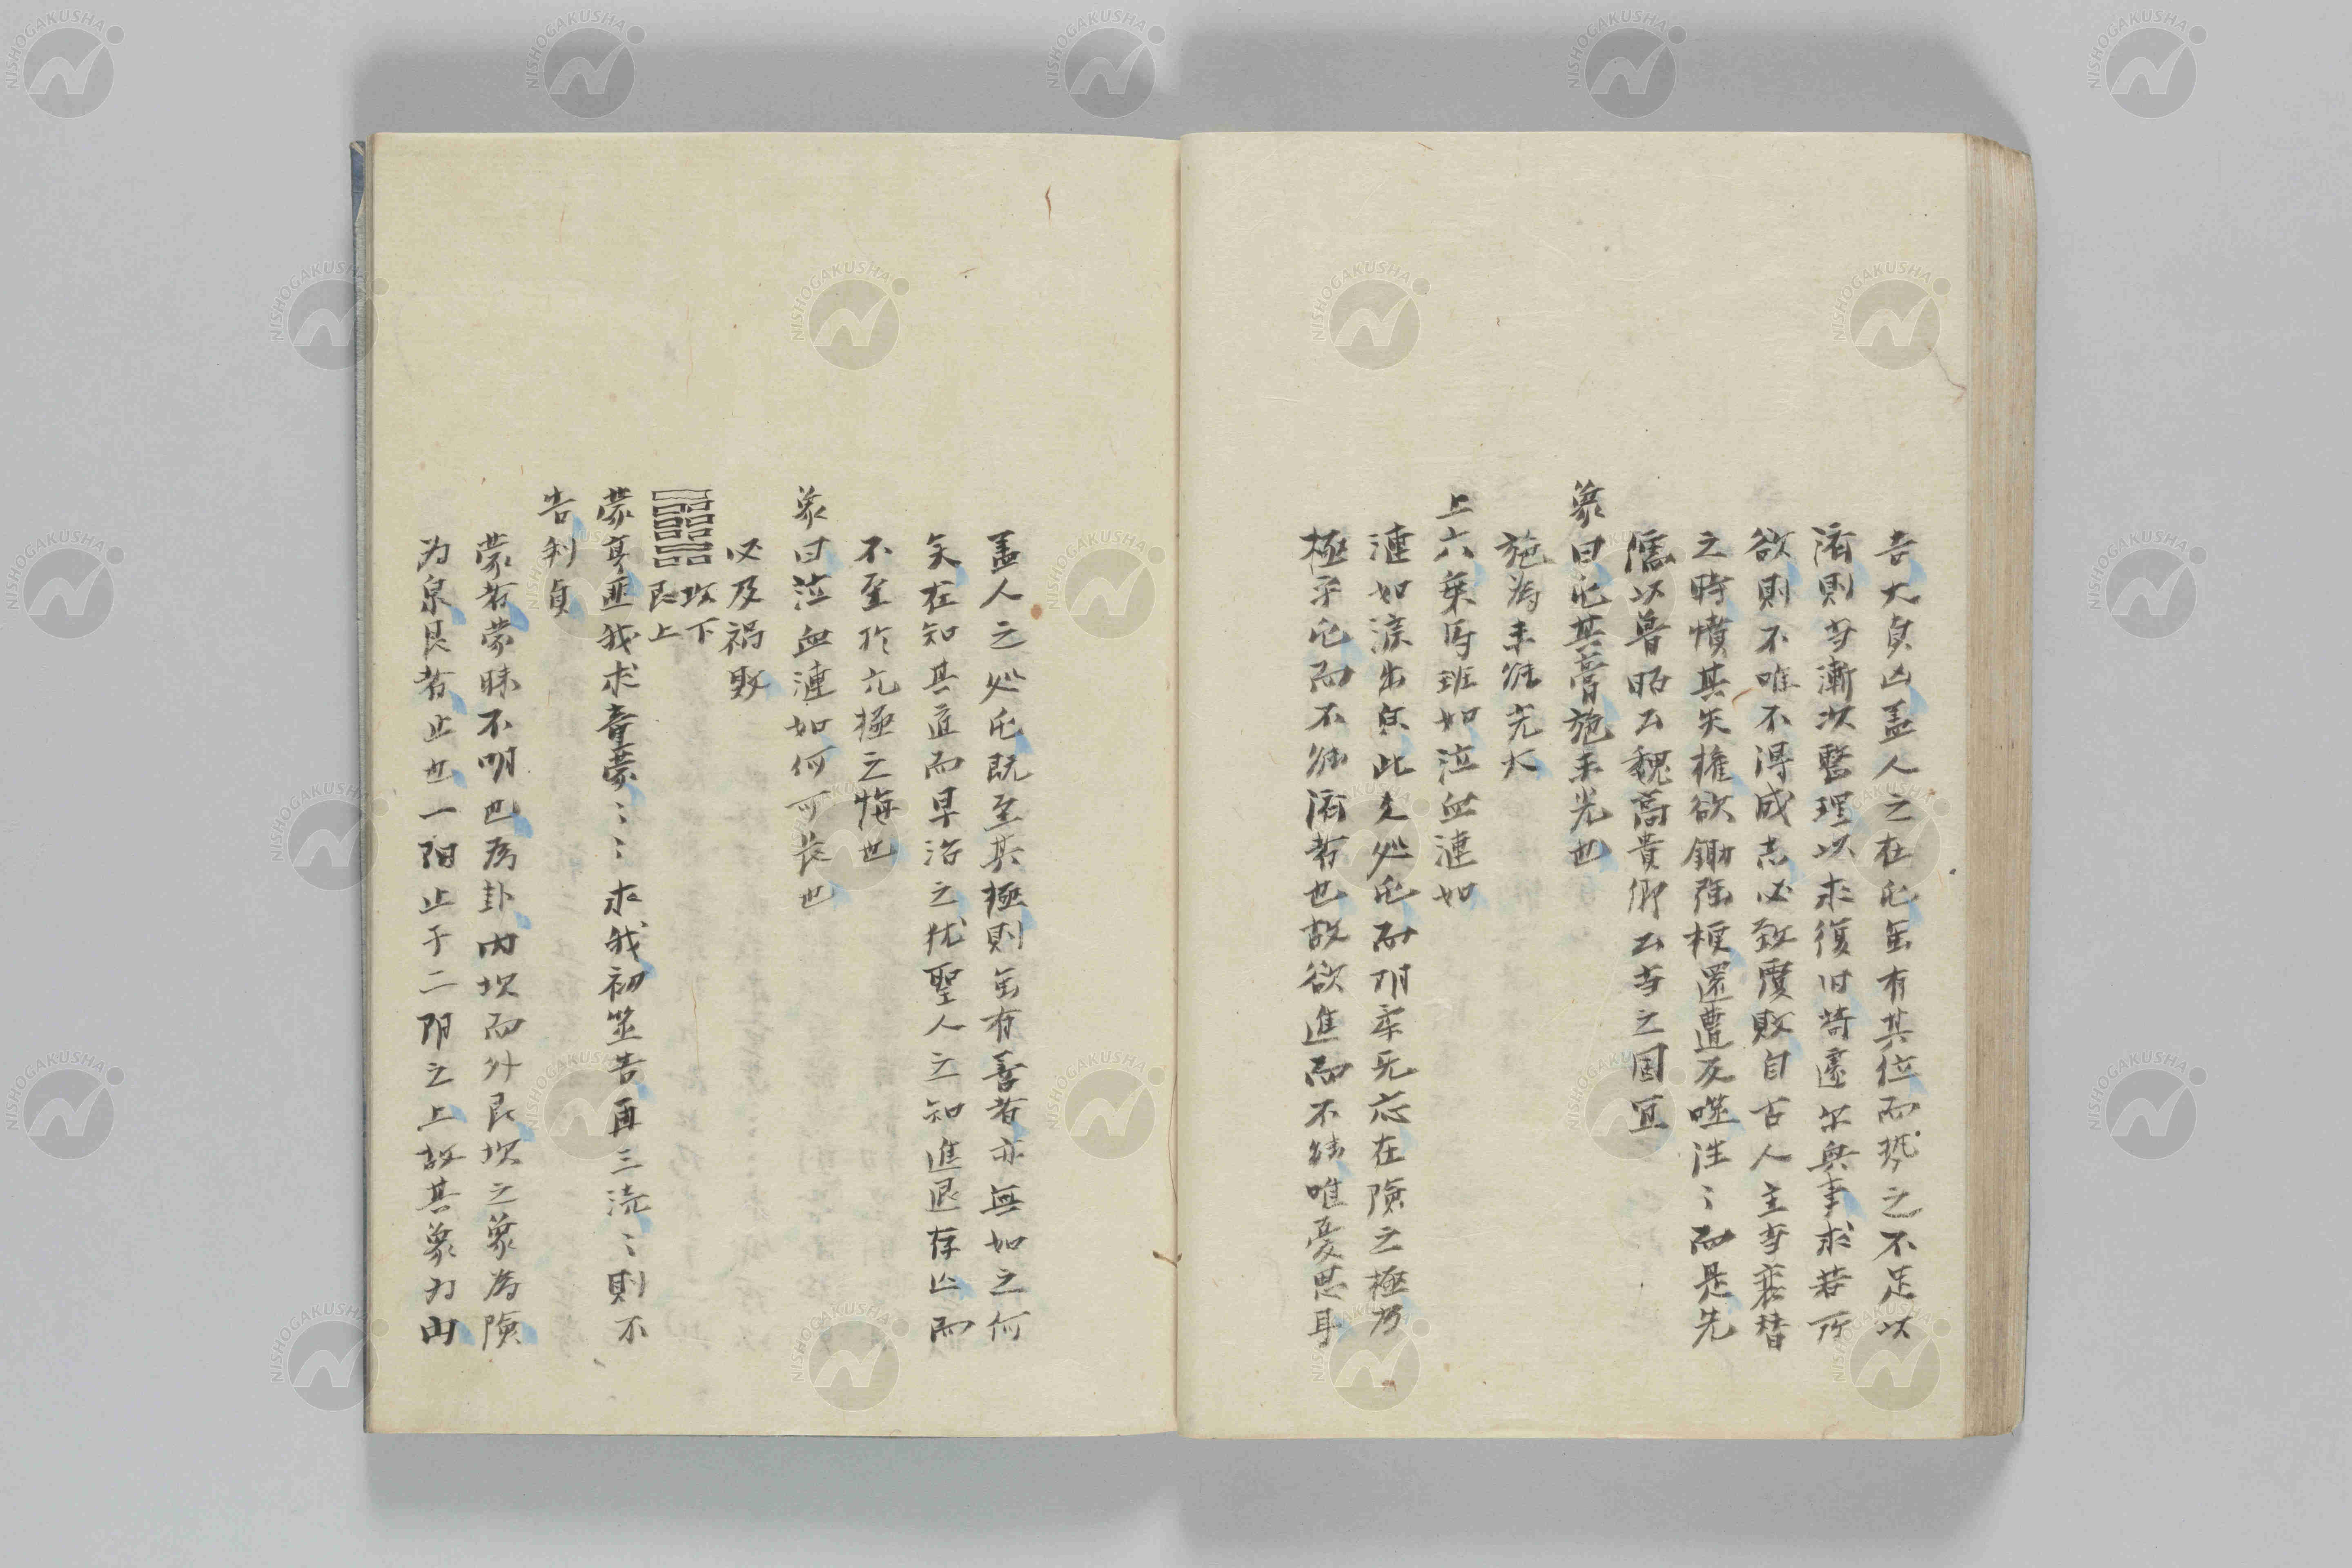 吉大貞凶盖人之在屯虽有其位而势之不足以
済則当漸次整理以求復旧苟遽尔興事求若所
欲則不唯不得成志必致覆敗自古人主当衰替
之時憤其失権欲鋤强梗還遭反噬往〻而是先
儒以魯昭公魏高貴卿公当之固宜
象曰屯其膏施未光也
施為未能光大
上六乗馬班如泣血漣如
漣如涙出皃此爻処屯而阴柔无応在険之極乃
極乎屯而不能済者也故欲進而不能唯憂思耳
盖人之処屯既至其極則虽有善者亦無如之何
矣在知其道而早治之猶聖人之知進退存亡而
不至於亢極之悔也
象曰泣血漣如何可長也
必及禍敗
坎下
艮上
蒙亨匪我求童蒙〻〻求我初筮告再三瀆〻則不
告利貞
蒙者蒙昧不明也為卦内坎而外艮坎之象為険
为泉艮者止也一阳止于二阴之上故其象为山
NISHOGAKUSHA